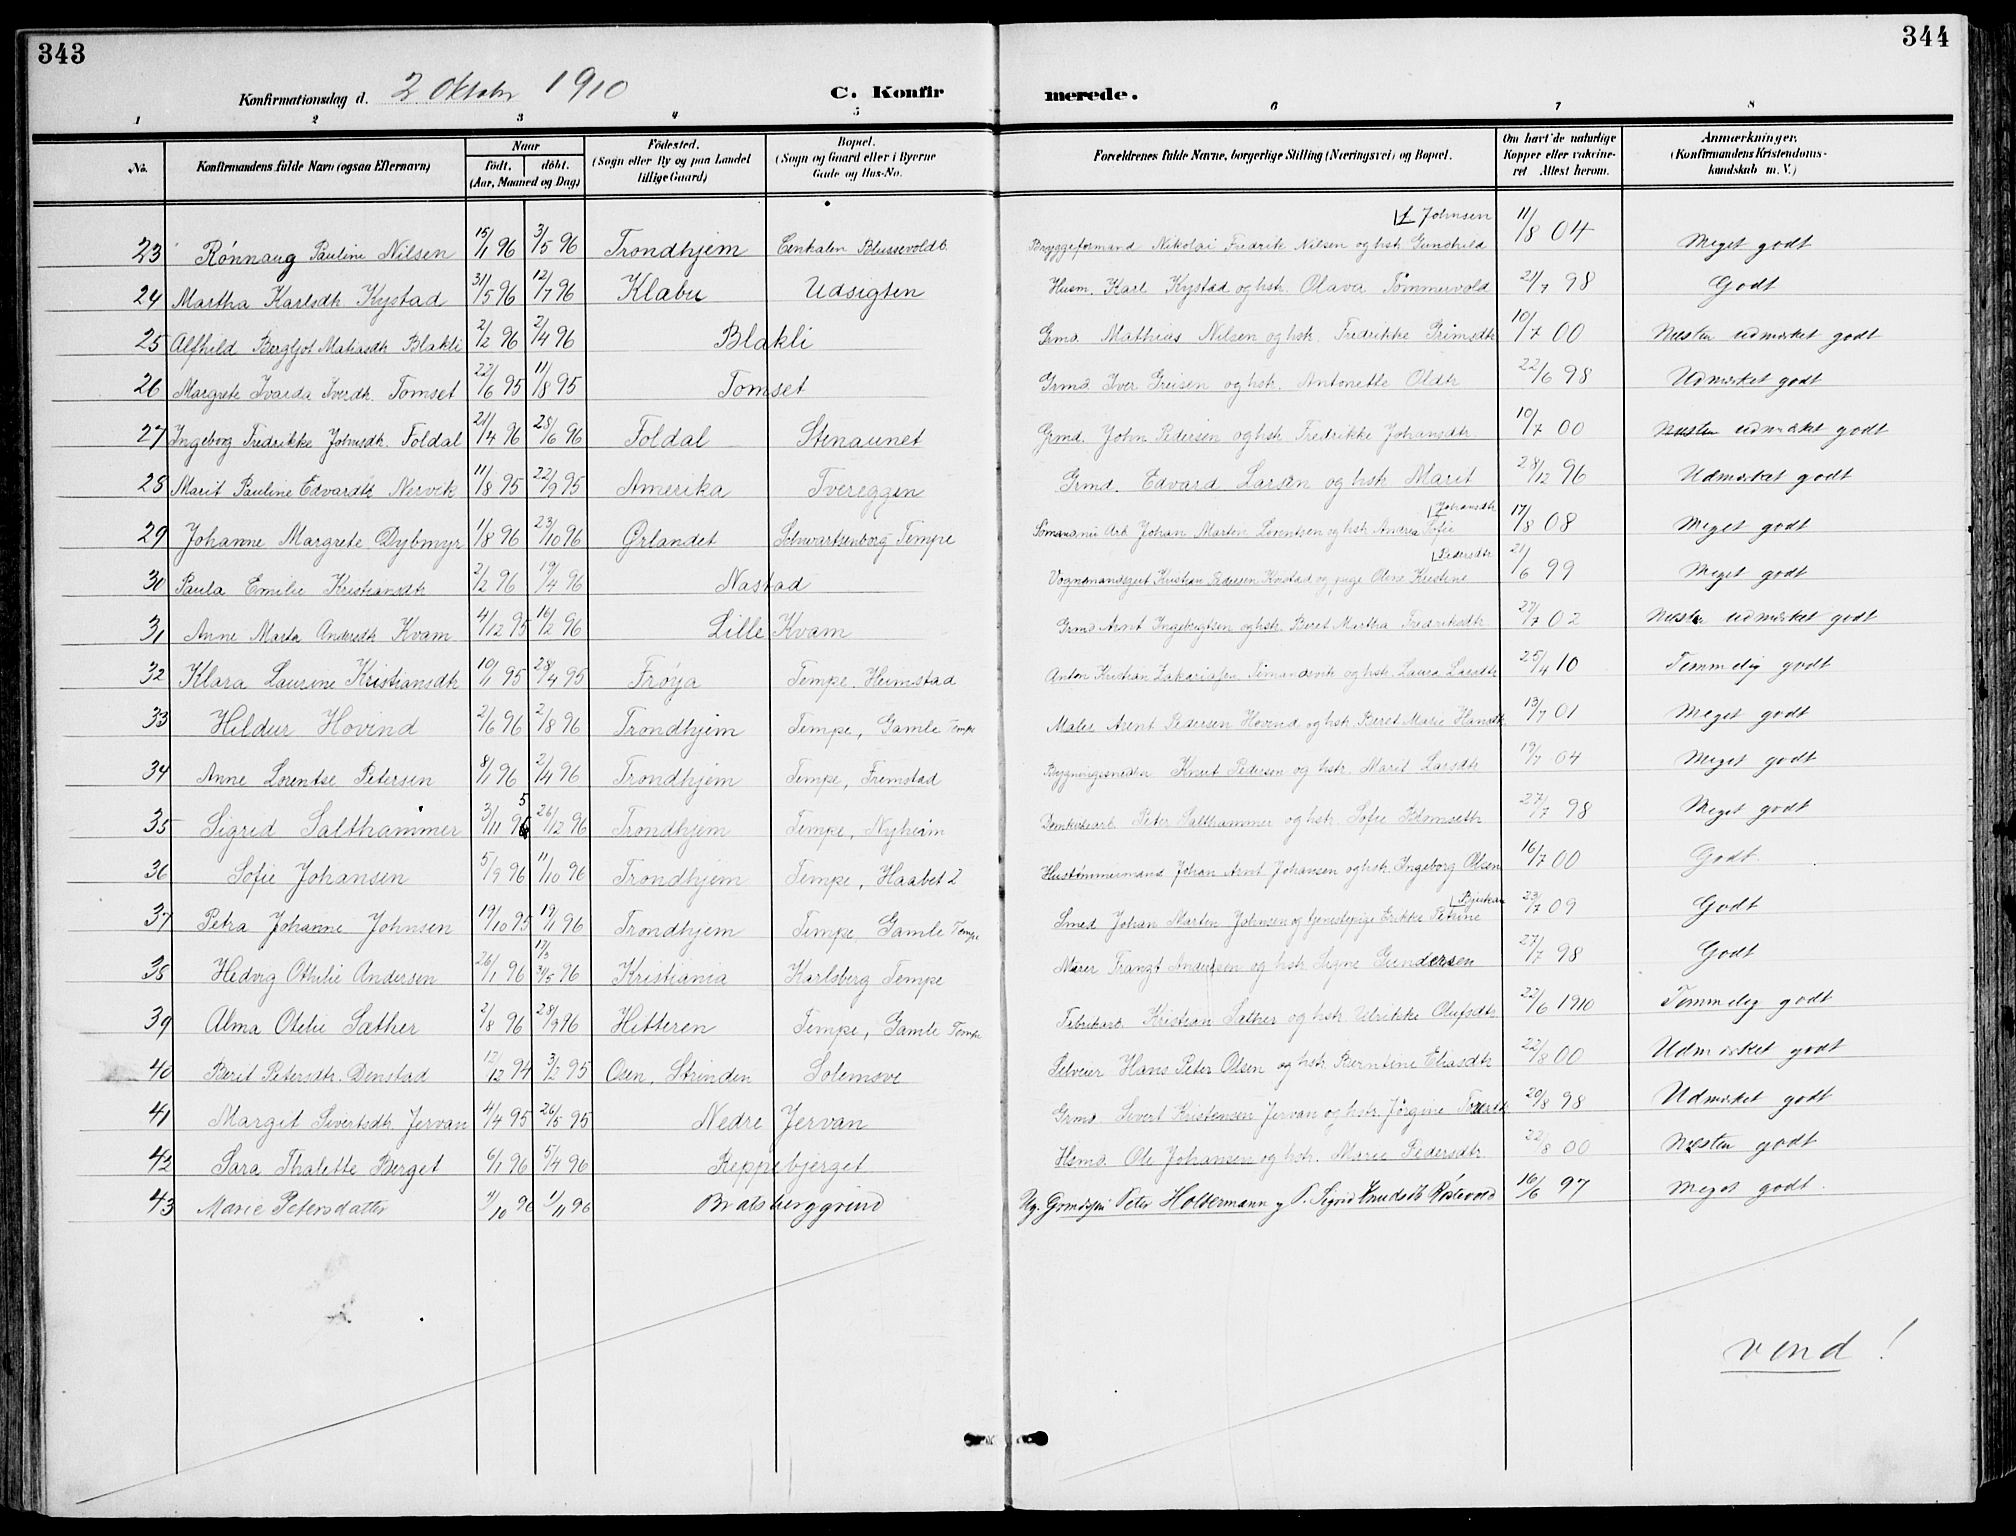 343
344
Konfirmationsdag d. 2 Oktobr 1910
C. Konfir merede.
1 2 3 4 5 6 7 8
No. Konfirmandens fulde Navn (ogsaa Efternavn) Naar födt. döbt. (Aar, Maaned og Dag) Födested. (Sogn eller By og paa Landet tillige Gaard) Bopæl. (Sogn og Gaard eller i Byerne Gade og Hus-No. Forældrenes fulde Navne, borgerlige Stilling (Næringsvei) og Bopæl. Om havt de naturlige Kopper eller vakcineret Attest herom. Anmærkninger. (Konfirmandens Kristendomskundskab m. V.)
Johnsen
23 Rønnaug Pauline Nilsen 15/1 96 3/5 96 Trondhjem Bryggeformand Nikolai Fredrik Nilsen og hst. Gunhild 11/8 04 Meget godt
24 Martha Karlsdtr Kystad 31/5 96 12/7 96 Klæbu Udsigten Husm. Karl Kystad og hst. Olava Tømmervold 21/7 98 Godt
25 Alfhild Bergljot Blakli 2/2 96 2/4 96 Blakli Grmd. Mathias Nilsen og hst. Fredrikke Grimsdtr 10/7 00 Næsten udmærket godt
26 Margrete Ivarda Iverdtr. Tomset 22/6 95 11/8 95 Tomset Grmd Iver og hst. Antonette Oldtr 22/6 98 Udmærket godt
27 Ingeborg Fredrikke Johnsdtr. Foldal 21/4 96 28/6 96 Foldal Stenaunet Grmd. John Pedersen og hst. Fredrikke Johansdtr. 10/7 00 Næsten udmærket godt
28 Marit Pauline Edvardtr Nervik 11/8 95 22/9 95 Amerika Tvereggen Grmd. Edvard Larsen og hst. Marit 28/12 96 Udmærket godt
Johansdtr
29 Johanne Margrete Dybmyr 1/8 96 23/10 96 Ørlandet Schwartsenborg Tempe Arb. Johan Martin Lorentsen og hst. Andrea Sofie 17/8 08 Meget godt
Pedersdtr
30 Paula Emilie Kristiansdtr 2/2 96 19/4 96 Nastad Kristian Pedersen og pige Kristine 21/6 99 Meget godt
31 Anne Marta Andersdtr Kvam 4/12 95 16/2 96 Lille Kvam Grmd Arnt Ingebrigtsen og hst. Beret Martha Fredriksdtr 27/7 02 Næsten udmærket godt
32 Klara Laurine Kristiansdtr 10/1 95 28/4 95 Frøya Tempe. Heimstad Anton Kristian Zakariasen og hst. Laura Larsdtr 25/4 10 Temmelig godt
33 Hildur Hovind 2/6 96 2/8 96 Trondhjem Tempe, Gamle Tempe Maler Arent Pedersen Hovind og hst. Beret Marie Hansdtr 13/7 01 Meget godt
34 Anne Lorentse Petersen 8/1 96 2/4 96 Trondhjem Tempe, Fremstad Bygningssneder Knut Pedersen og hst. Marit Larsdtr 19/7 04 Meget godt
35 Sigrid Salthammer 3/11 95 26/12 96 Trondhjem Tempe, Nyheim Peter Salthammer og hst. Sofie 27/7 98 Meget godt
36 Sofie Johansen 5/9 96 11/10 96 Trondhjem Tempe, Haabet 2 Hustømmermand Johan Arnt Johansen og hst. Ingeborg Olsen 16/7 00 Godt.
37 Petra Johanne Johnsen 19/10 95 19/1 96 Trondhjem Tempe, Gamle Tempe Smed Johan Martin Johnsen og tjenestepige Erikke Petrine 23/7 09 Godt
38 Hedvig Othilie Andersen 26/1 96 17/3 3/5 96 Kristiania Karlsberg Tempe Murer Frantz Andersen og hst. Signe Gundersen 27/7 98 Godt
39 Alma Otelie Sæther 2/8 96 28/9 96 Hitteren Tempe, Gamle Tempe Fabrikarb. Kristian Sæther og hst. Ulrikke Olufsdtr 22/6 1910 Temmelig godt
40 Beret Petersdtr. Denstad 12/12 94 3/2 95 Osen, Strinden Solemove Hans Peter Olsen og hst. Berntine Eliasdtr 22/8 00 Udmærket godt
41 Margit Sivertsdtr. Jervan 4/4 95 26/5 95 Nedre Jervan Grmd. Sivert Kristensen Jervan og hst. Jørgine 20/8 98 Udmærket godt
42 Sara Thalette Berget 6/1 96 5/4 96 Reppebjerget Hsmd. Ole Johansen og hst. Marie Pedersdtr. 22/8 00 Næsten godt
43 Marie Petersdatter /10 96 1/11 96 Bratsberggrind Ug. Peter Holtermann og P. Sigrid Knudsdtr 16/6 97 Meget godt.
vend!